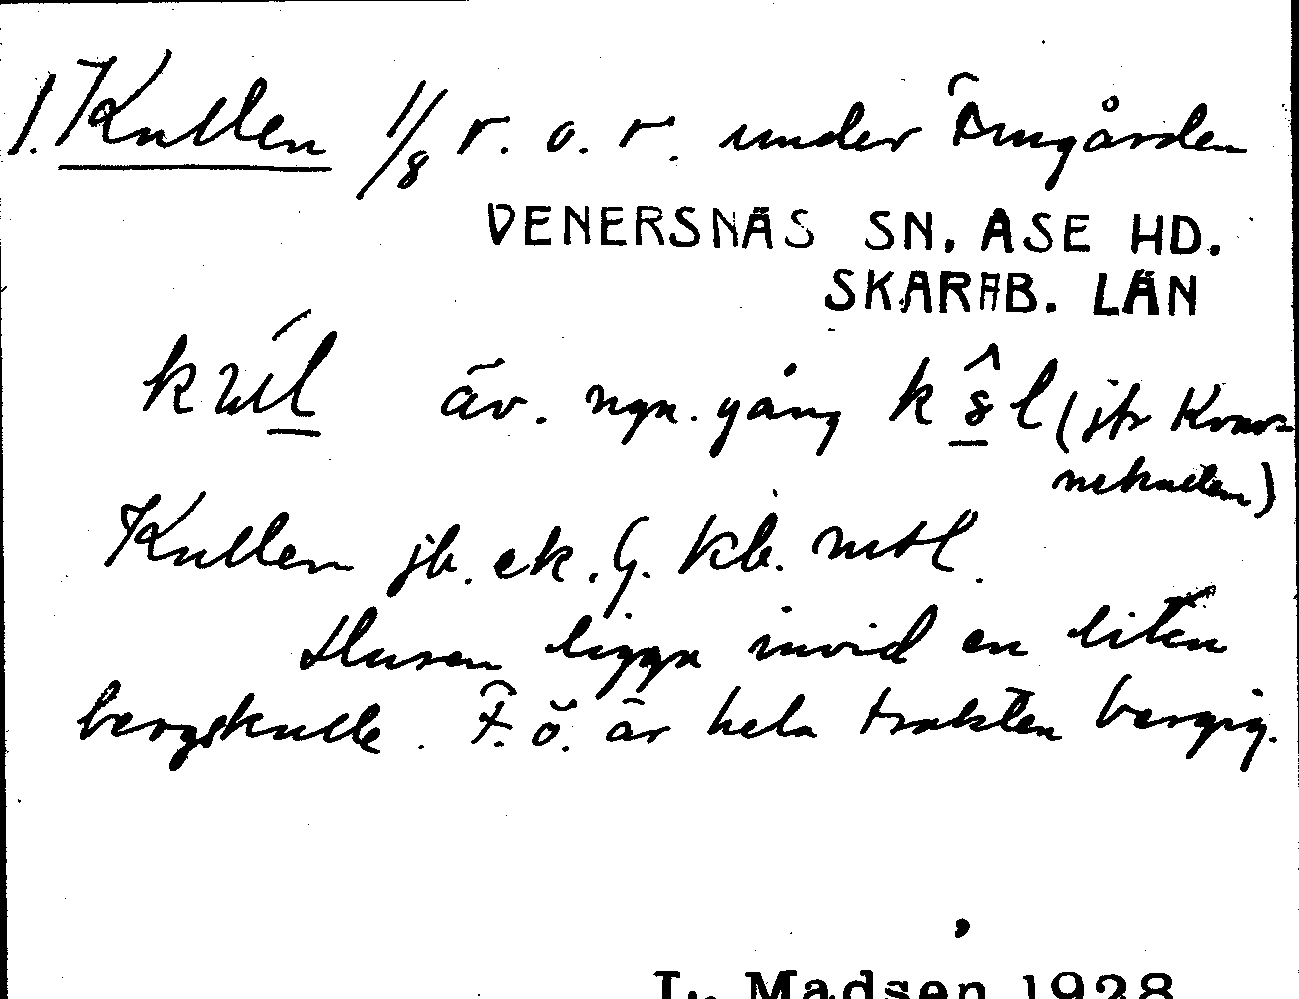 1. Kullen 1/8 r. o. r. under Åmgården
VENERSNÄS SN. ASE HD.
SKARAB. LÄN
äv. ngn. gång (jfr Kvarn-
nekullen)
Kullen jb. ek. G. kb. mtl.
Husen ligga invid en liten
bergskulle. F. ö. är hela trakten bergig.
L. Madsen 1928